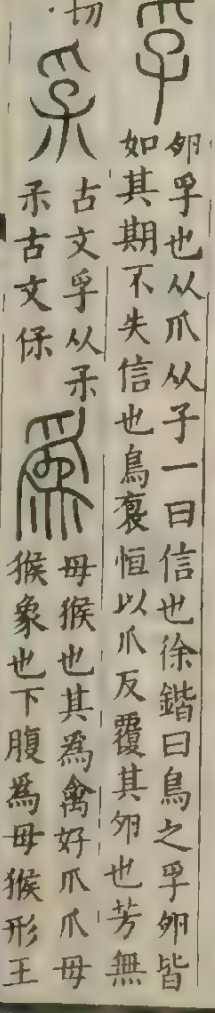 孚
卵孚也从爪从子一曰信也徐鍇曰鳥之孚卵皆
如其期不失信也鳥裒恒以爪反覆其卵也芳無
切
𤔍
古文孚从𣎼
𣎼古文保
爲
母猴也其為禽好爪爪母
猴象也下腹爲母猴形王